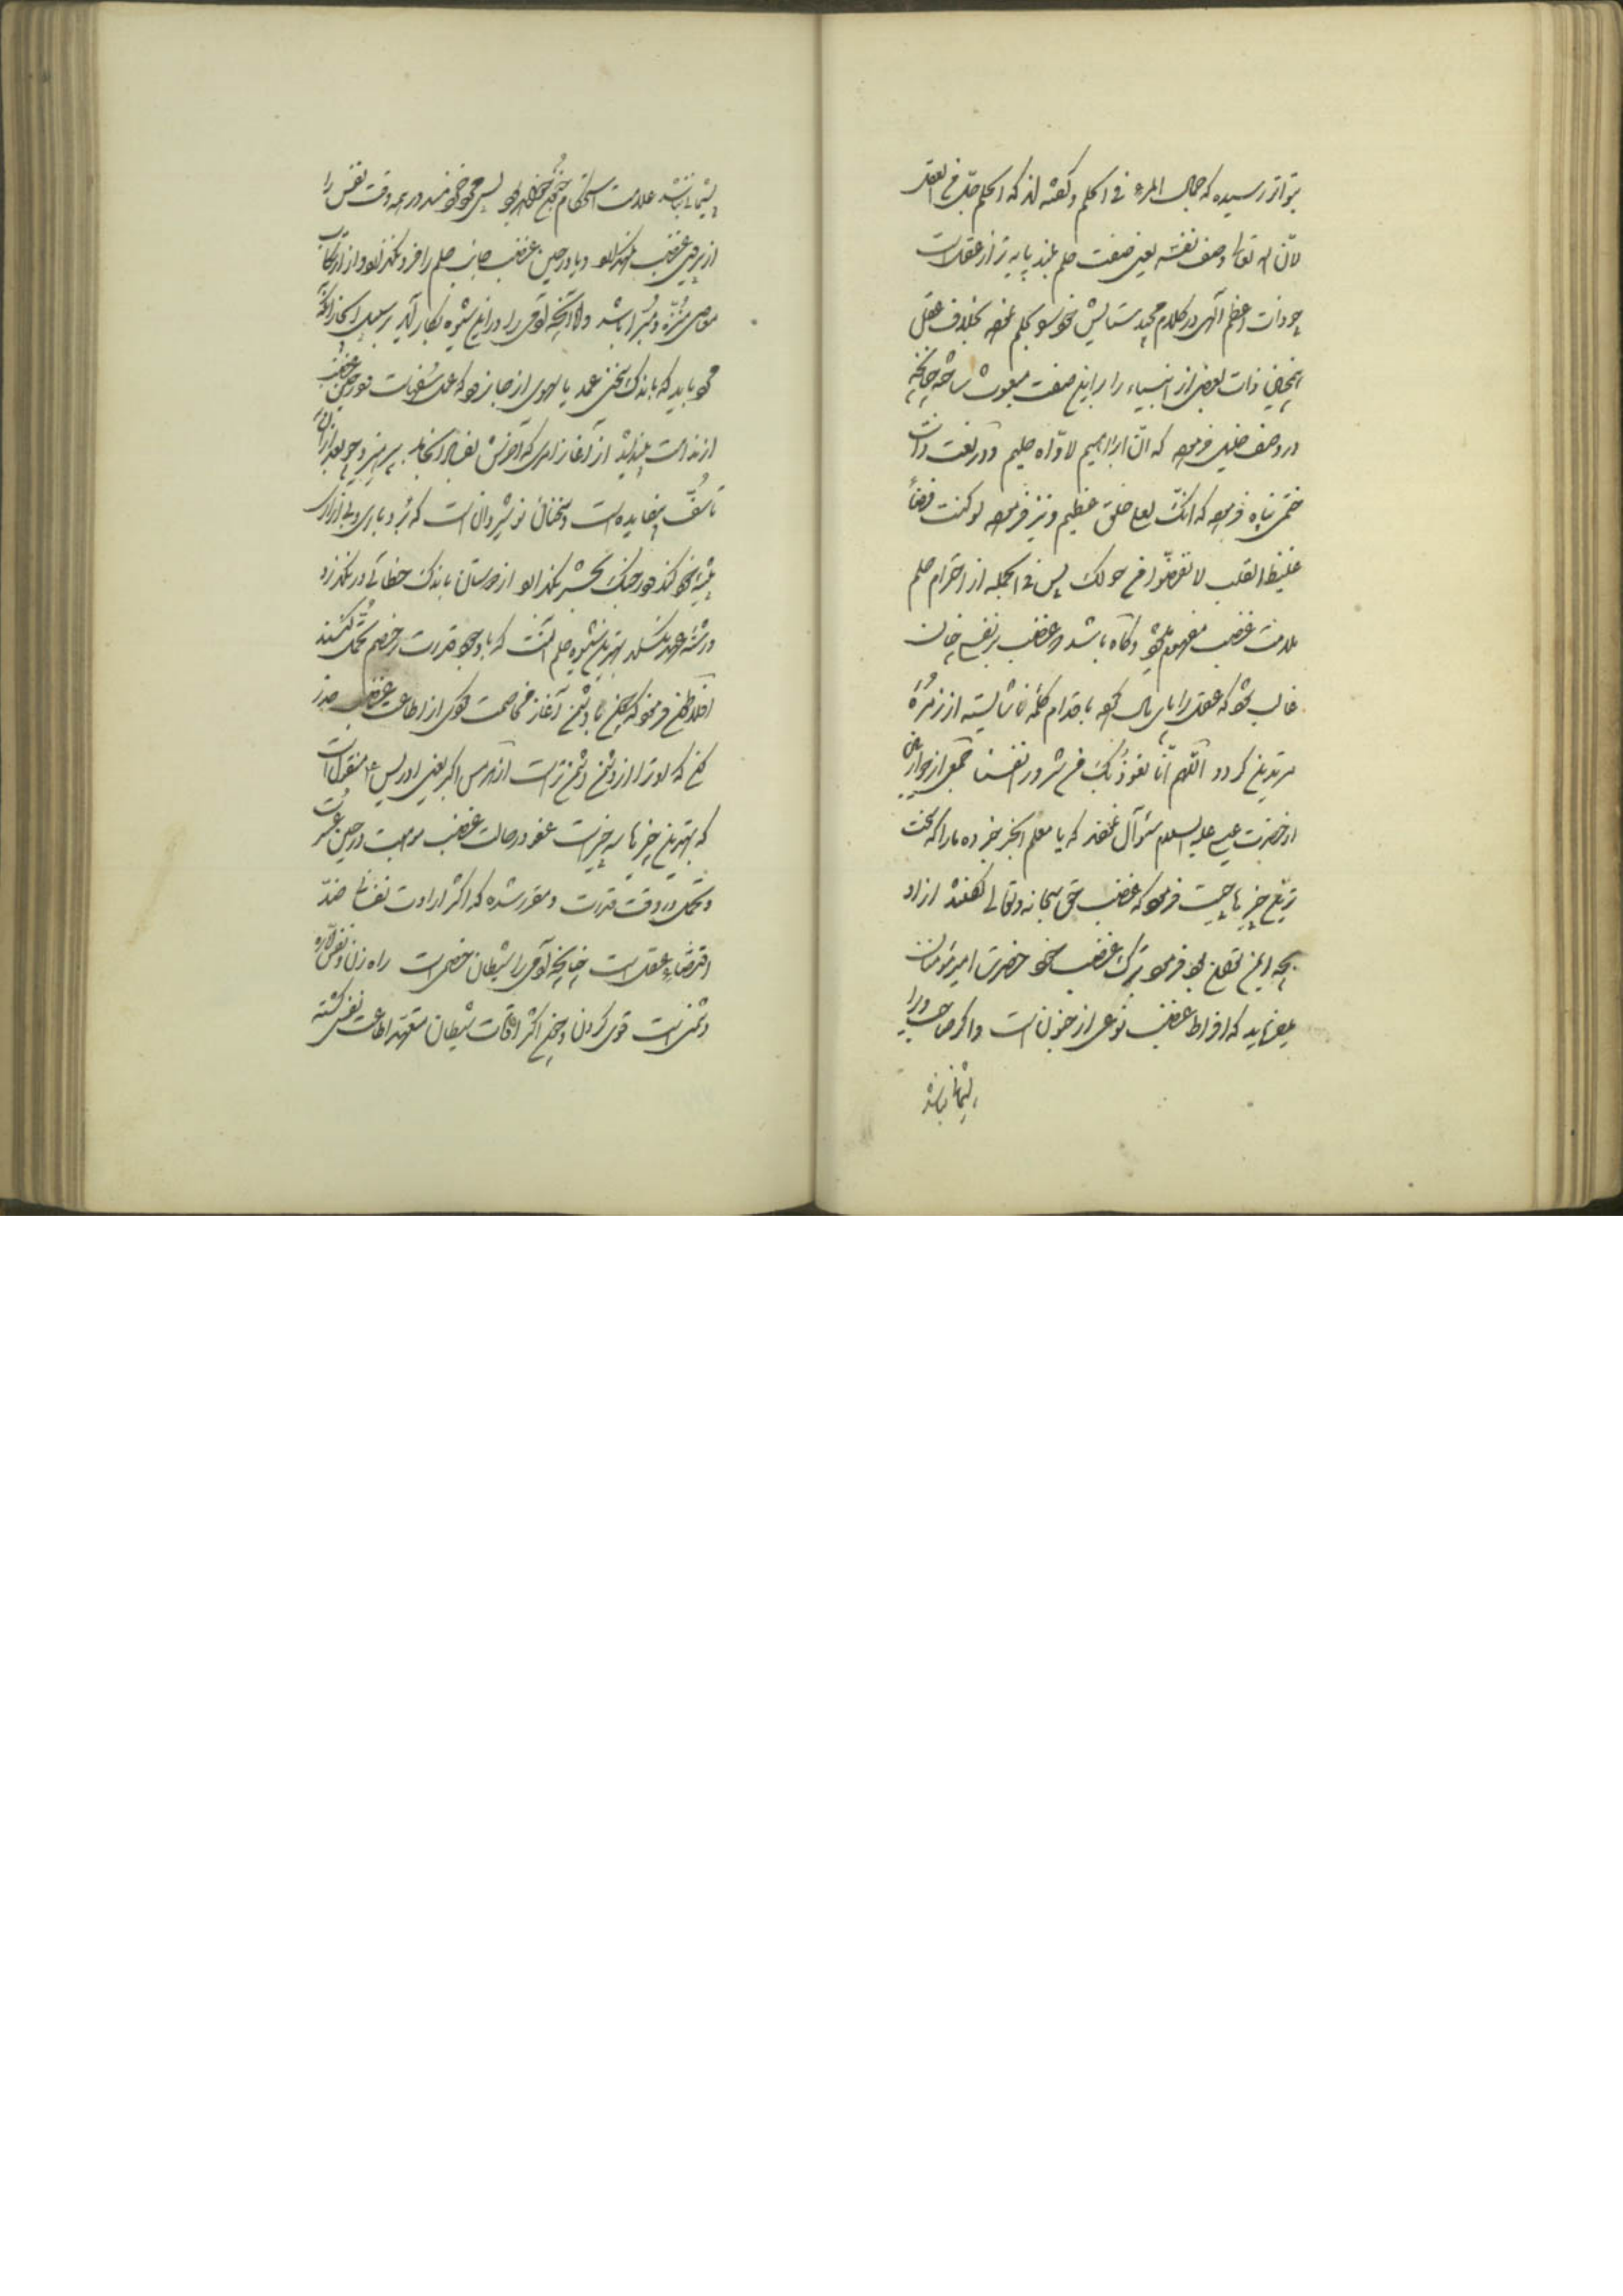 بتواتر رسیده که جمال المرء فی الحلم و گفته‌اند که الحلم اجل من العقل
لانّ الله تعالی وصف نفسه یعنی صفت حلم بلند پایه‌تر از عقل است
چه ذات اعظم الهی در کلام مجید ستایش خود بحلم نموده بخلاف عقل
همچنین ذات بعضی از انبیاء را باین صفت ساخته چنانچه
در وصف خلیل فرموده که انّ ابراهیم لاوّاه حلیم و در نعت ذات
ختمی پناه فرموده که انّک لعلی خلق عظیم و نیز فرموده لو کنت فظاً
غلیظ القلب لانفضّوا من حولک پس فی الجمله از احترام حلم
ملامت غضب مفهوم میشود و گاه باشد که غضب بر نفس چنان
غالب شود که عقل را پامال کرده باقدام کلمهٔ ناشایسته از زمرهٔ
مرتدین گردد اللّهم انّا نعوذ بک من شرور انفسنا جمعی از حواریین
از حضرت عیسی علیه السلام سؤال نمودند که یا معلم الخیر خبر ده ما را که سخت
ترین چیزها چیست فرمود که غضب حق سبحانه و تعالی گفتند از او
بچه ایمن توان بود فرمود بترک غضب خود حضرت امیر مؤمنان
میفرماید که افراط غضب نوعی از جنون است و اگر صاحب او را
پشیمانی نباشد
پشیمانی نباشد علامت استحکام جنون خواهد بود پس خردمند در همه وقت نفس را
از غضب نگهدارد و یا در حین غضب جانب حلم را فرو نگذارد و از ارتکاب
معاصی منزّه و مبرّا باشد و الا آنچه آدمی را در این شیوه بکار آید بر سبیل ایجاز آنکه
باید که باندک سخنی عمد یا سهوی از جا نرود که
از ندامت بیندیشد از آغاز امری که آخرش بپرهیزد چه بعد از آن
تأسّف بیفایده است و سخنان نوشیروان است که بردباری و بی‌آزاری
پیشه خود کند در جنگ بخشش نگذارد از دوستان باندک خطائی درنگذرد
و رشته عهد نگسلد بهترین شیوه حلم آنست که با وجود قدرت بر خصم تحمّل کنند
افلاطون فرمود که چون با دشمن آغاز مخاصمت کنی از اطاعت غضب حذر
کن که او ترا از دشمن دشمن‌تر است از هرمس اکبر یعنی ادریس ع منقول است
که بهترین چیزها سه چیز است عفو در حالت غضب موهبت در حین عسرت
و تحمل در وقت قدرت و مقرر شده که اکثر ارادت نفسانی ضدّ
اقتضای عقل است چنانچه آدمی را شیطان خصمی است راه زن و نفس امّاره
دشمنی است قوی کردن و چون اکثر اوقات شیطان متعهد اطاعت نفس گشته